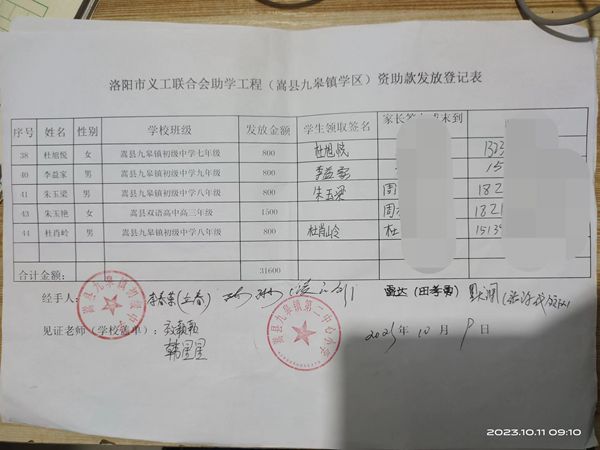 洛阳市义工联合会助学工程（嵩县九皋镇学区）资助款发放登记表
序号 姓名 性别 学校班级 发放金额 学生领取签名 家长 未到
38 杜旭悦 女 嵩县九皋镇初级中学七年级 800 杜旭悦
40 李益家 男 嵩县九皋镇初级中学九年级 800 李益家 15
41 朱玉梁 男 嵩县九皋镇初级中学八年级 800 朱玉梁 周 182
43 朱玉艳 女 嵩县双语高中高三年级 1500 周 1821
44 杜肖岭 男 嵩县九皋镇初级中学八年级 800 杜肖岭 杜 1513
合计金额： 31600
经手人： 李春荣(立春)
见证老师（学校盖章）：
韩星星
2023年10月9日
嵩县九皋镇初级中学
嵩县九皋镇第二中心小学
2023.10.11 09:10